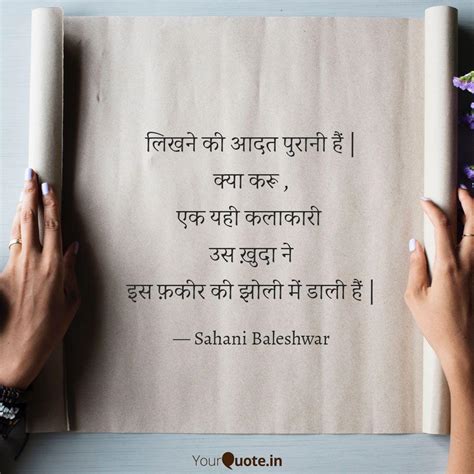 लिखने की आदत पुरानी हैं |
क्या करू ,
एक यही कलाकारी
उस ख़ुदा ने
इस फ़कीर की झोली में डाली हैं |
— Sahani Baleshwar
YourQuote.in